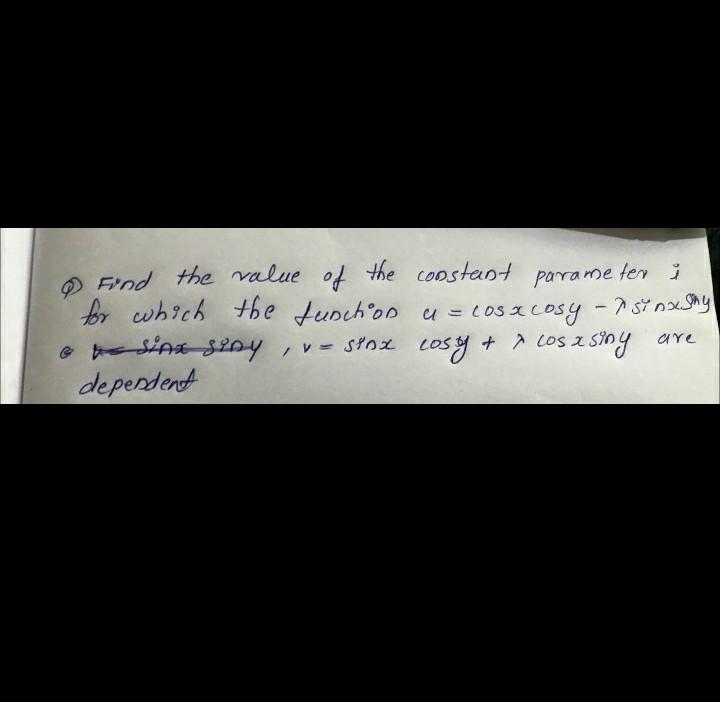 Q) Find the value of the constant parameter i
for which the function u = cosx cosy - λ sinx siny
v = sinx siny , v = sinx cosy + λ cosx siny are
dependent